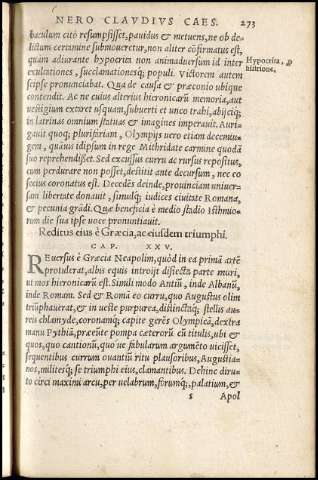 NERO CLAVDIVS CAES. 273
baculum citò resumpsisset, pauidus & metuens, ne ob de-
lictum certamine submoueretur, non aliter cõfirmatus est,
quàm adiurante hypocrita non animaduersum id inter
exultationes, succlamationesq; populi. Victorem autem
seipse pronunciabat. Qua de causa & præconio ubique
contendit. Ac ne cuius alterius hieronicarũ memoria, aut
uestigium extaret usquam, subuerti et unco trahi, abijciq;
in latrinas omnium statuas & imagines imperauit. Auri-
gauit quoq; plurifariam, Olympijs uero etiam decemiu-
gem, quãuis idipsum in rege Mithridate carmine quodã
suo reprehendisset. Sed excussus curru ac rursus repositus,
cum perdurare non posset, destitit ante decursum, nec eo
secius coronatus est. Decedẽs deinde, prouinciam uniuer-
sam libertate donauit, simulq; iudices ciuitate Romana,
& pecunia grãdi. Quæ beneficia è medio stadio Isthmio-
rum die sua ipse uoce pronuntiauit.
Hypocrita,
histriones.
Reditus eius è Græcia, ac eiusdem triumphi.
CAP. XXV.
REuersus è Græcia Neapolim, quòd in ea primã artẽ
protulerat, albis equis introijt disiecta parte muri,
ut mos hieronicarũ est. Simili modo Antiũ, inde Albanũ,
inde Romam. Sed & Romã eo curru, quo Augustus olim
triũphauerat, & in ueste purpurea, distinctaq; stellis au-
reis chlamyde, coronamq; capite gerẽs Olympicã, dextra
manu Pythiã, præeũte pompa cæterorũ cũ titulis, ubi &
quos, quo cantionũ, quo ue fabularum argumẽto uicisset,
sequentibus currum ouantiũ ritu plausoribus, Augustia-
nos, militesq; se triumphi eius, clamantibus. Dehinc diru-
to circi maximi arcu, per uelabrum, forumq;, palatium, &
s Apol